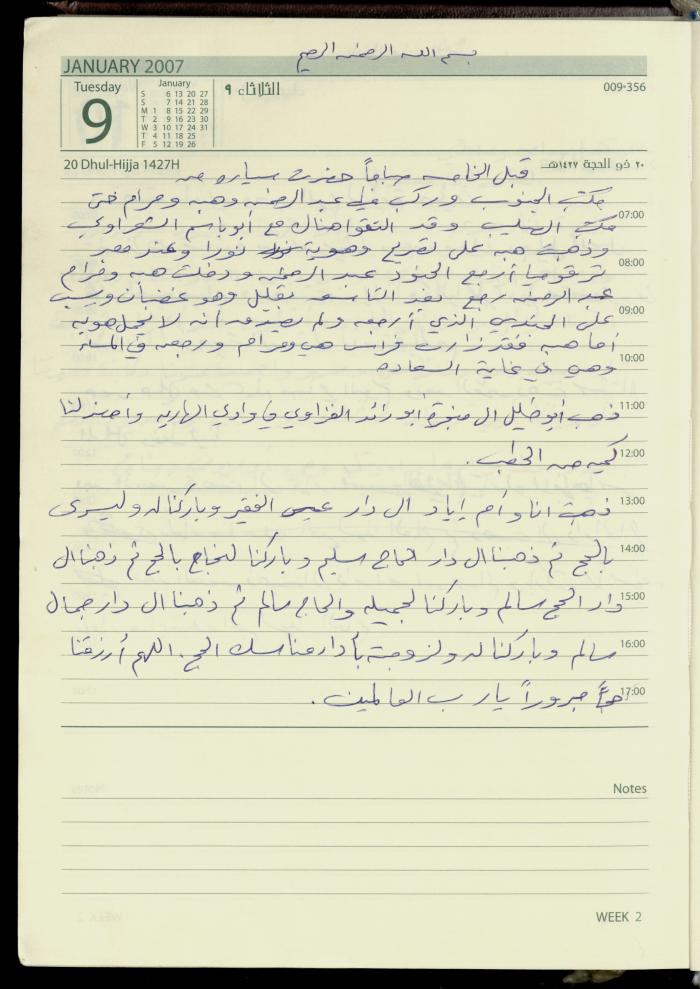 بسم الله الرحمن الرحيم
JANUARY 2007
Tuesday
9
January
S 6 13 20 27
S 7 14 21 28
M 1 8 15 22 29
T 2 9 16 23 30
W 3 10 17 24 31
T 4 11 18 25
F 5 12 19 26
الثلاثاء ٩
009-356
20 Dhul-Hijja 1427H
٢٠ ذو الحجة ١٤٢٧هـ
قبل الخامسه صباحاً حضرت سياره من
مكتب الجنوب وركب فيها عبد الرحمن وهبه ومرام حتى
07:00
مكتب الصليب وقد التقوا هناك مع أبو باسم الشعراوي
وذهبت هبه على تصريح وهوية نورا وعند معبر
08:00
ترقوميا أرجع الجنود عبد الرحمن ودخلت هبه ومرام
عبد الرحمن رجع بعد التاسعه بقليل وهو غضبان ويسب
09:00
على الجندي الذي أرجعه ولم يصدقه أنه لا يحمل هويه
أما هبه فقد زارت فراس هي ومرام ورجعه في المساء
10:00
وهي في غاية السعاده
11:00
ذهب أبو خليل ال منجرة أبو رائد الغزاوي في وادي الهاريه وأحضر لنا
12:00
كميه من الحطب .
13:00
ذهبت انا وأم إياد ال دار عيسى الفقير وباركنا له وليسرى
14:00
بالحج ثم ذهبنا ال دار الحاج سليم وباركنا لنجاح بالحج ثم ذهبنا ال
15:00
دار الحج سالم وباركنا لجميله والحاج سالم ثم ذهبنا ال دار جمال
16:00
سالم وباركنا له ولزوجته بأداء مناسك الحج . اللهم أرزقنا
17:00
حجاً مبروراً يا رب العالمين .
Notes
WEEK 2